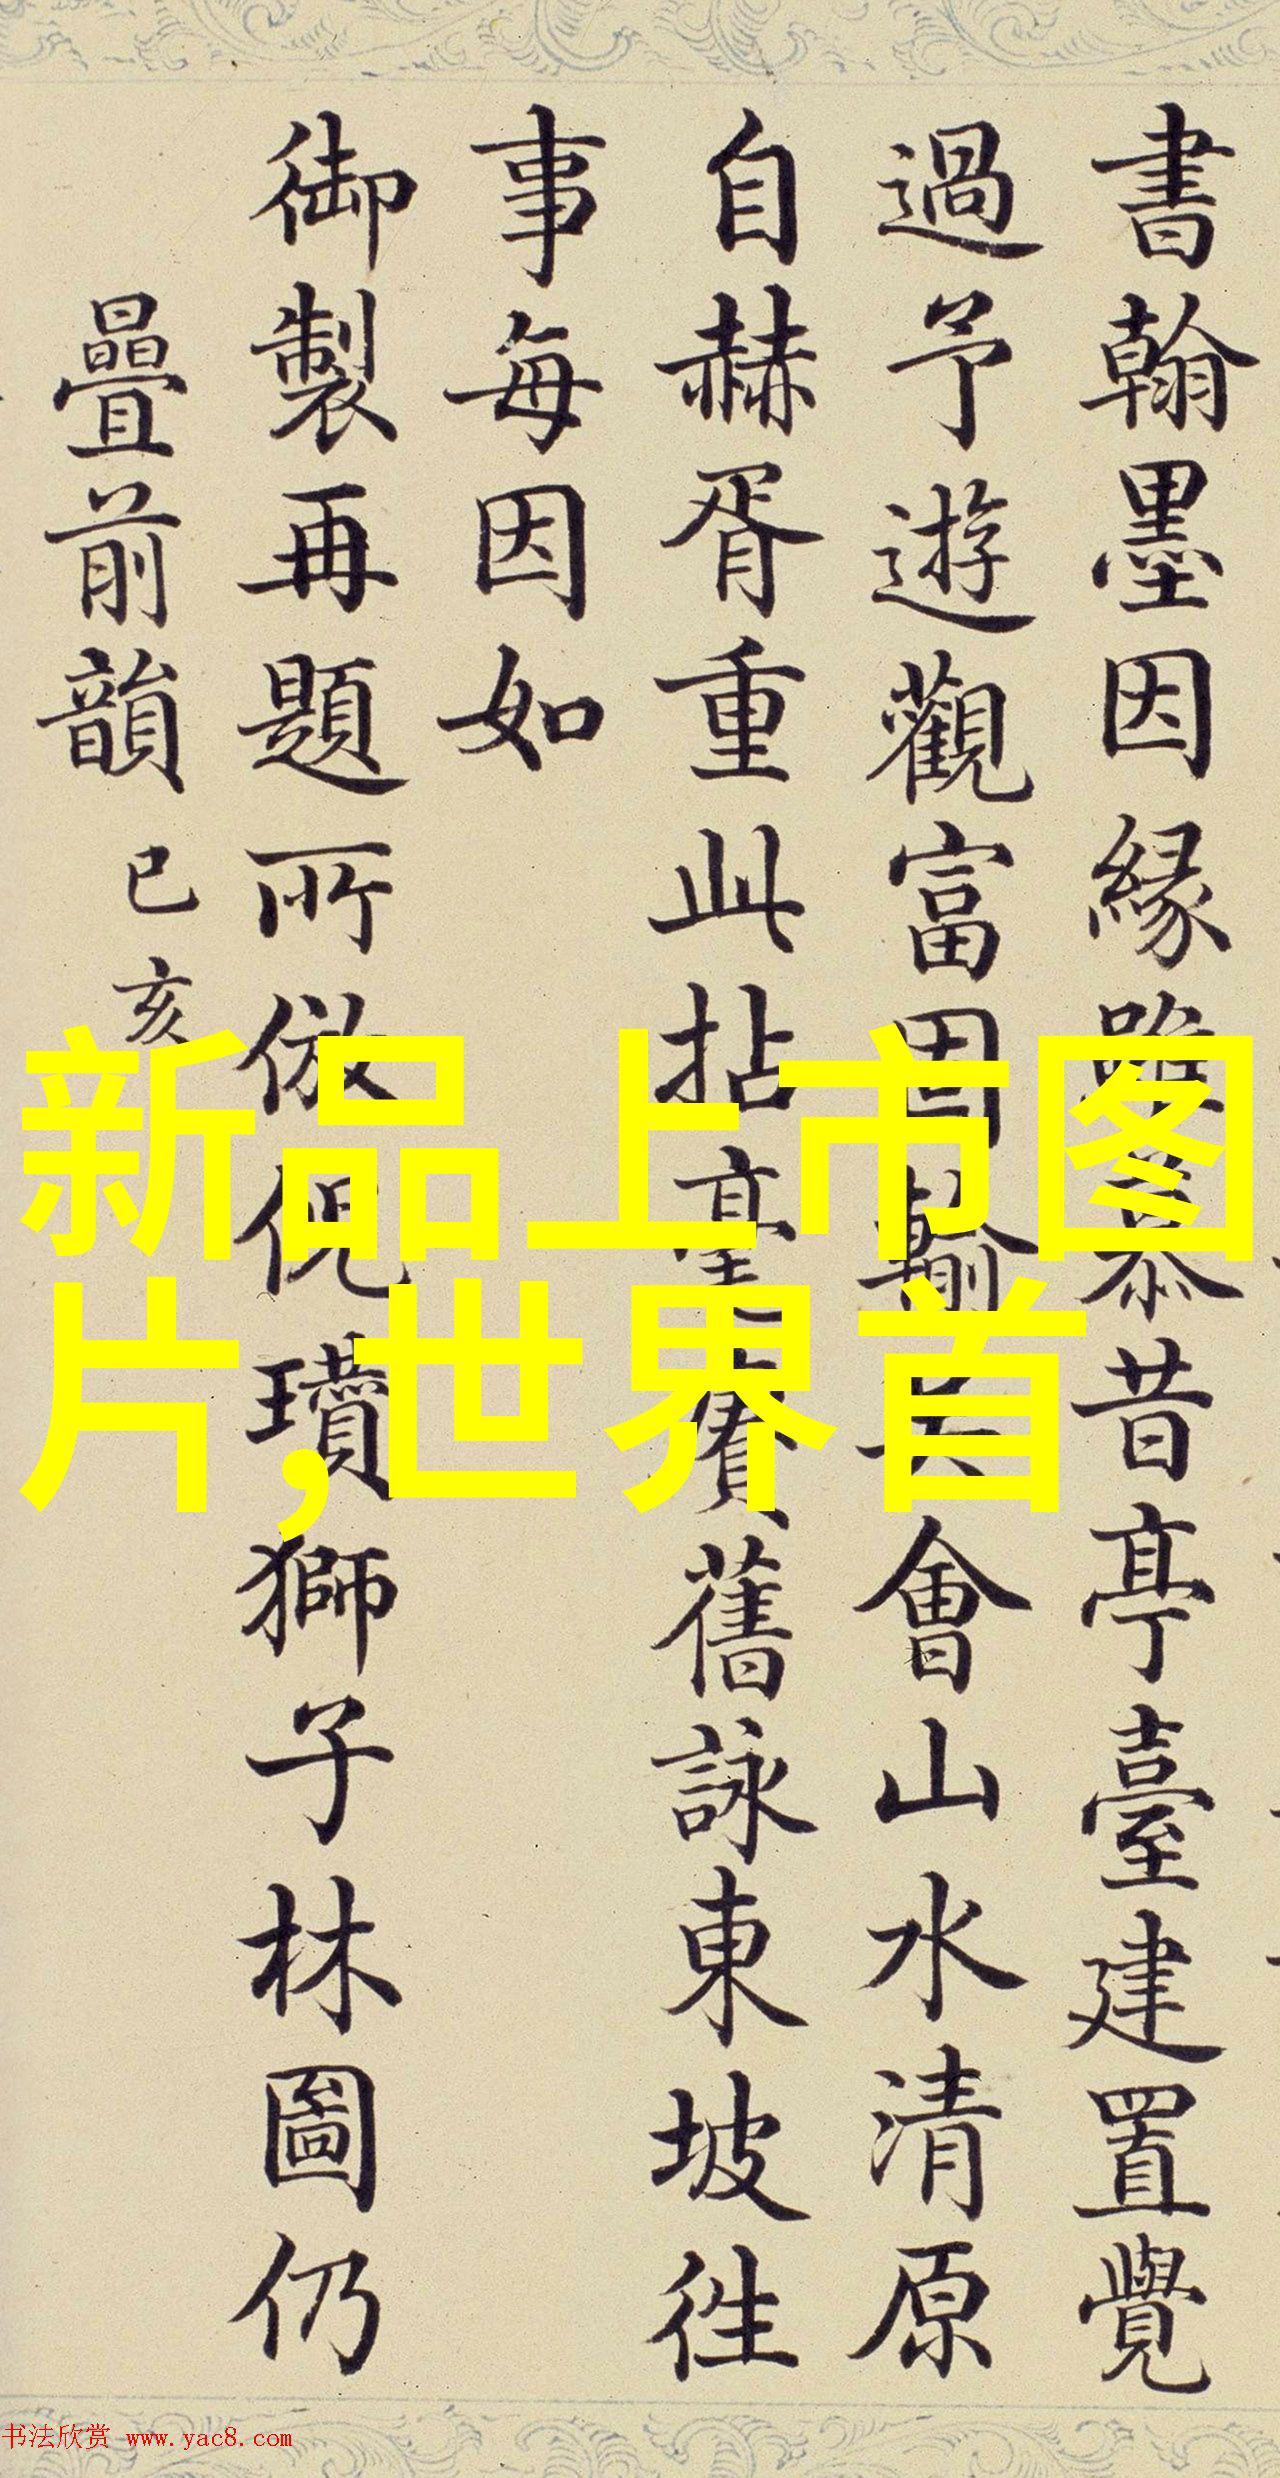 書翰墨因緣雖慕昔亭臺建置覺
過予遊觀富因輸大會山水清原
自赫胥重此拈毫賡舊詠東坡徃
事每因如
御製再題所倣倪瓚獅子林圖仍
疊前韻己亥
新品上市图
片,世界首
书法欣赏 www.yac8.com